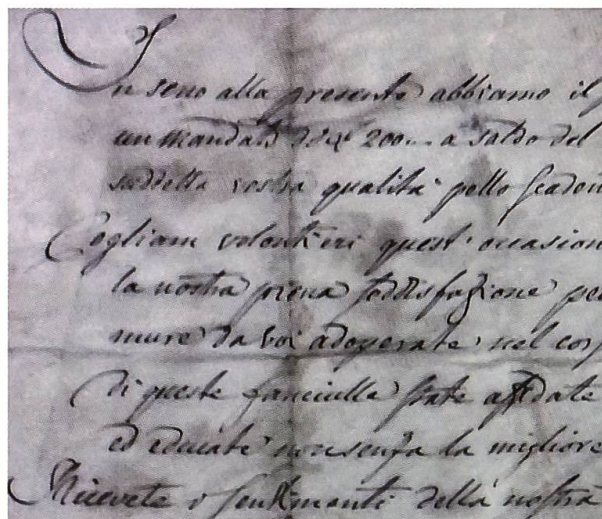 In seno alla presente abbiamo il
un mandato di 200 a saldo del
suddetta vostra qualità pello scaden
Cogliam volontieri quest'occasion
la nostra piena soddisfazione pe
mure da voi adoperate nel cor
di queste fanciulle state affidate
ed educate non senza la migliore
Ricevete i sentimenti della nostra